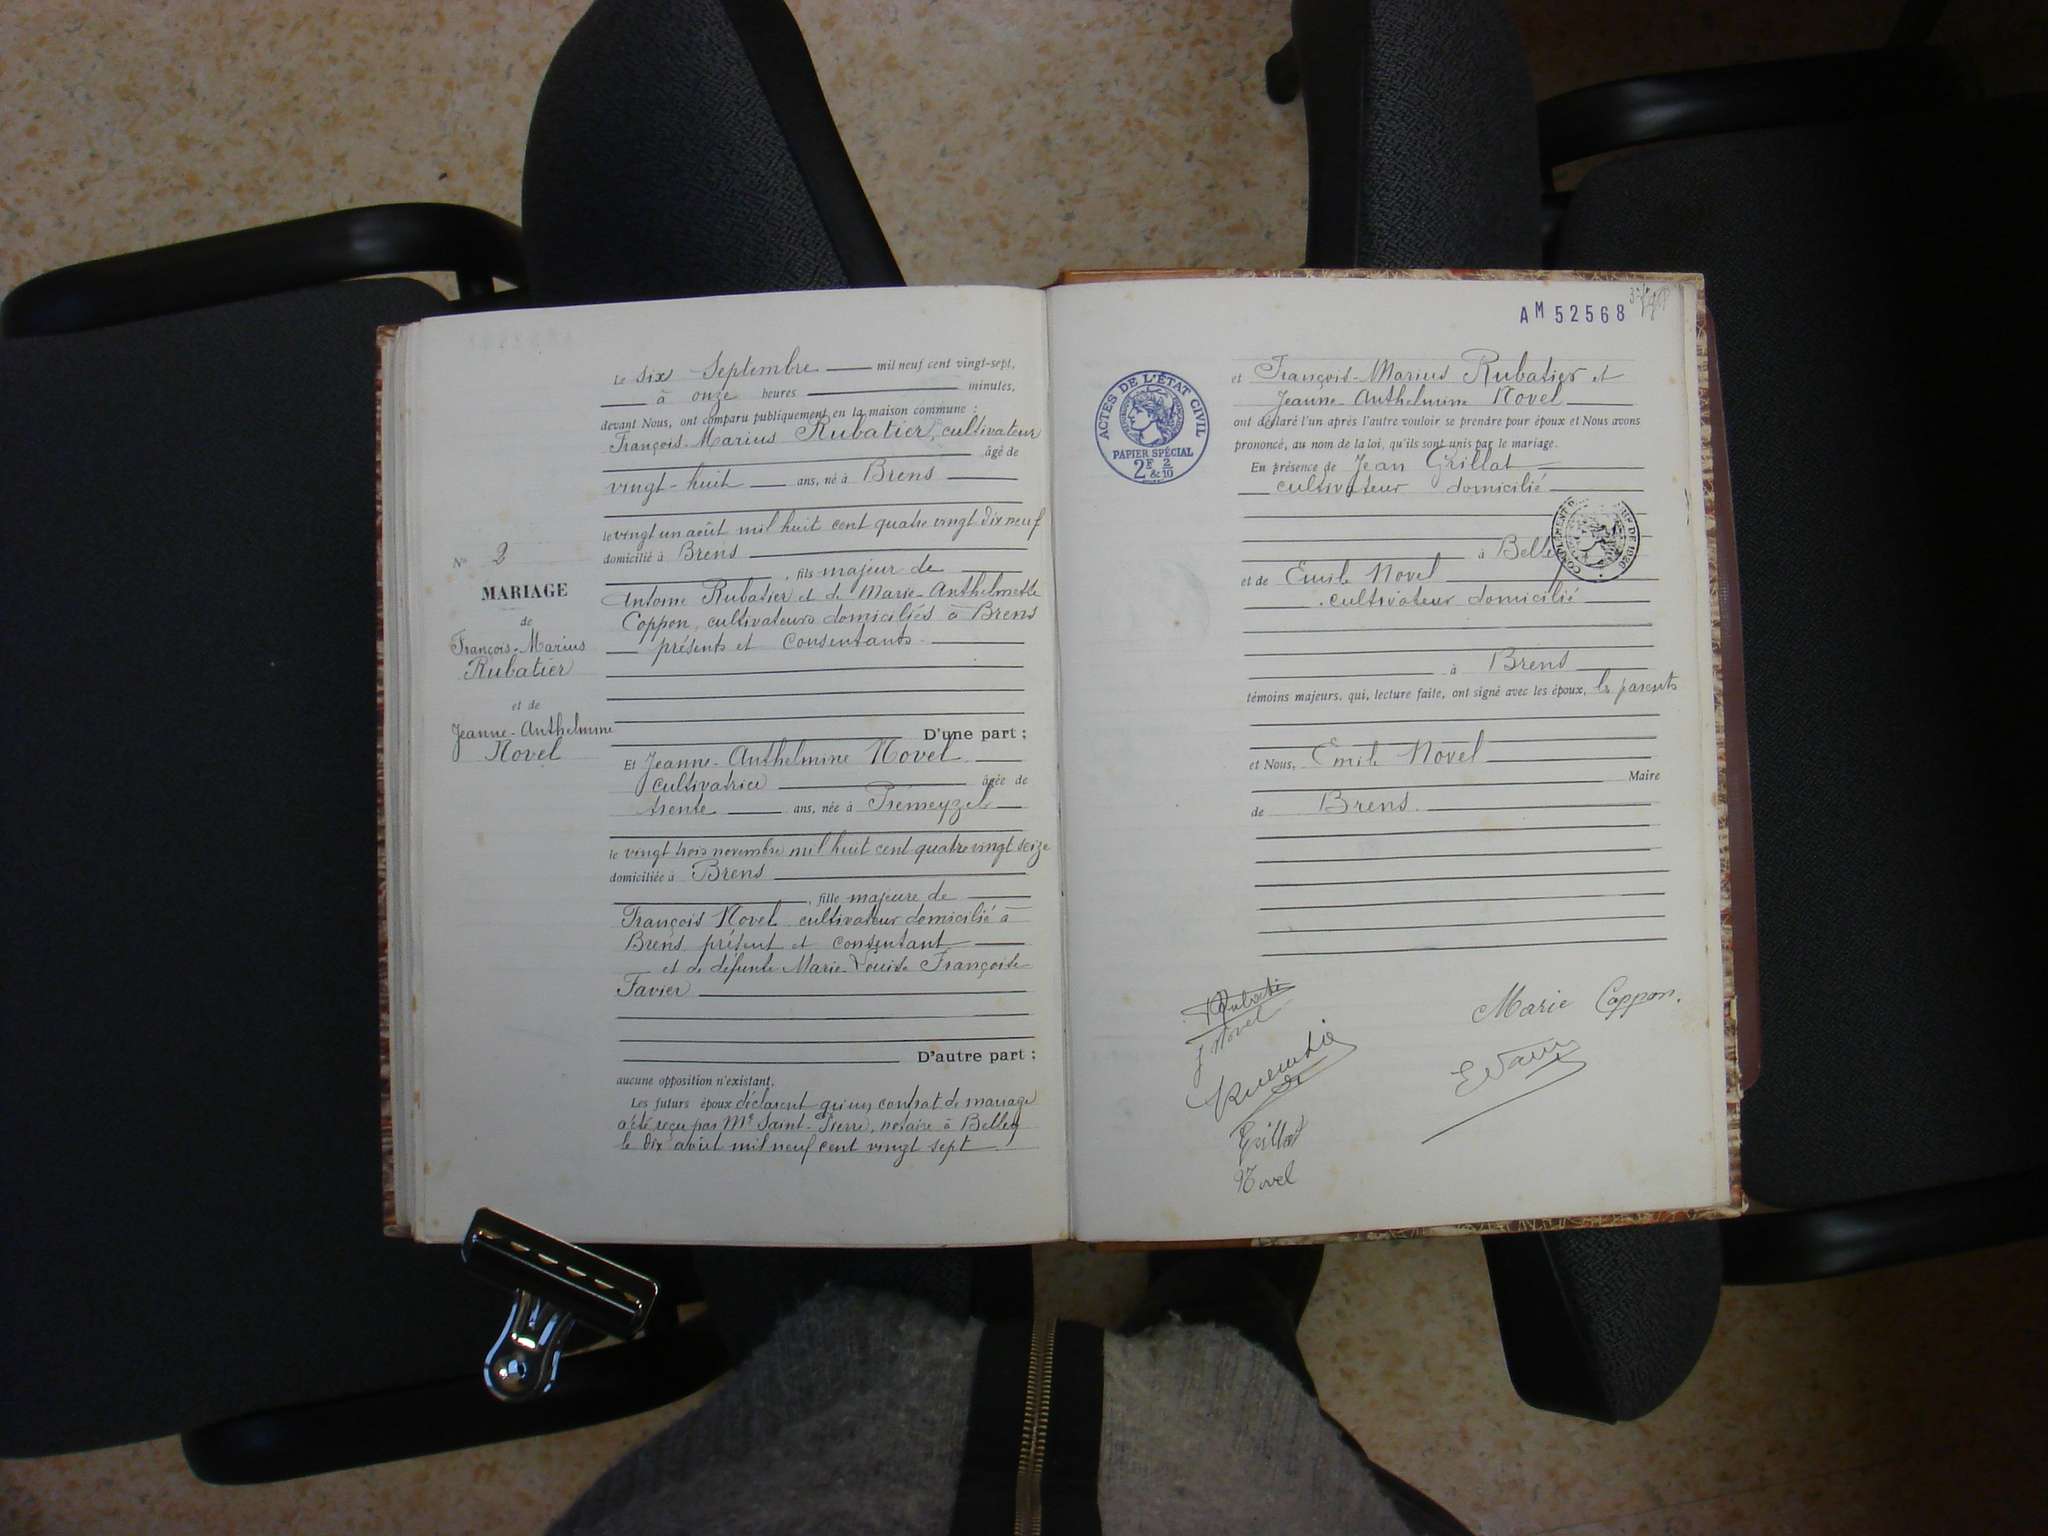 N° 2
MARIAGE
de
François-Marius
Rubatier
et de
Jeanne-Anthelmine
Novel
Le Six Septembre mil neuf cent vingt-sept,
à onze heures minutes,
devant Nous, ont comparu publiquement en la maison commune :
François-Marius Rubatier, cultivateur
âgé de
vingt-huit ans, né à Brens
le vingt un août mil huit cent quatre vingt dix neuf
domicilié à Brens
, fils majeur de
Antoine Rubatier et de Marie-Anthelmette
Coppon, cultivateurs domiciliés à Brens
présents et consentants
D'une part ;
Et Jeanne-Anthelmine Novel
cultivatrice âgée de
trente ans, née à Prémeyzel
le vingt trois novembre mil huit cent quatre vingt seize
domiciliée à Brens
, fille majeure de
François Novel cultivateur domicilié à
Brens, présent et consentant
et de défunte Marie-Louise Françoise
Favier
D'autre part ;
aucune opposition n'existant,
Les futurs époux déclarent qu'un contrat de mariage
a été reçu par Me Saint-Pierre, notaire à Belley
le dix août mil neuf cent vingt sept
AM 52568
ACTES DE L'ÉTAT CIVIL
PAPIER SPÉCIAL
2F & 2/10
et François-Marius Rubatier et
Jeanne-Anthelmine Novel
ont déclaré l'un après l'autre vouloir se prendre pour époux et Nous avons
prononcé, au nom de la loi, qu'ils sont unis par le mariage.
En présence de Jean Grillat
cultivateur domicilié
à Belley
et de Emile Novel
cultivateur domicilié
à Brens
témoins majeurs, qui, lecture faite, ont signé avec les époux, les parents
et Nous, Emile Novel
Maire
de Brens.
J Novel
Marie Coppon.
Grillat
Novel